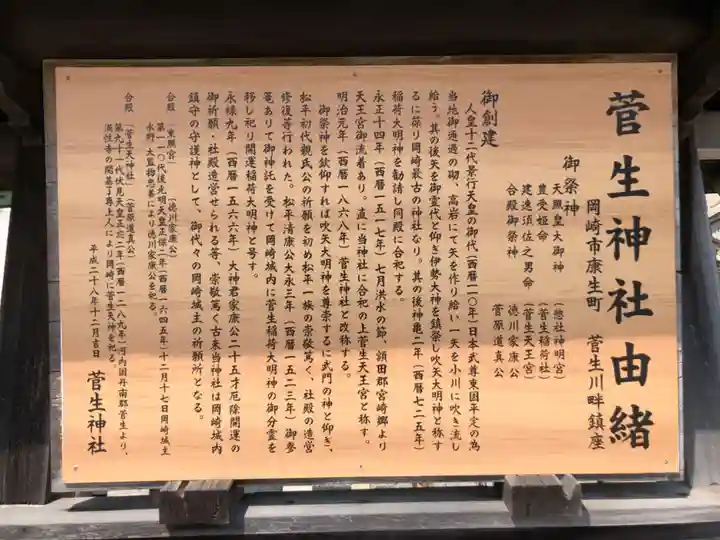 菅生神社由緒
岡崎市康生町　菅生川畔鎮座
御祭神
天照皇大御神（総社神明宮）
豊受姫命（菅生稲荷社）
建速須佐之男命（菅生天王宮）
合殿御祭神　徳川家康公
菅原道真公
御創建
人皇十二代景行天皇の御代（西暦一一〇年）日本武尊東国平定の為
当地御通過の砌、高岩にて矢を作り給い一矢を小川に吹き流し
給う。其の後矢を御霊代と仰ぎ伊勢大神を鎮祭し吹矢大明神と称す
るに筋り岡崎最古の神社なり。其の後神亀二年（西暦七二五年）
稲荷大明神を勧請し同殿に合祀する。
永正十四年（西暦一五一七年）七月洪水の節、額田郡宮崎郷より
天王宮御流着あり。直に当神社に合祀の上菅生天王宮と称す。
明治元年（西暦一八六八年）菅生神社と改称する。
御祭神を欽仰すれば吹矢大明神を尊崇するに武門の神と仰ぎ、
松平初代親氏公の祈願を初め松平一族の崇敬篤く、社殿の造営
修復等行われた。松平清康公大永三年（西暦一五二三年）御勢
篭ありて御神託を受けて岡崎城内に菅生稲荷大明神の御分霊を
移し祀り開運稲荷大明神と号す。
永禄九年（西暦一五六六年）大神君家康公二十五才厄除開運の
御祈願・社殿造営せられる等、崇敬篤く古来当神社は岡崎城内
鎮守の守護神として、御代々の岡崎城主の祈願所となる。
合殿　「東照宮」（徳川家康公）
第一一〇代後光明天皇正保二年（西暦一六四五年）十二月十七日岡崎城主
水野大監物忠善により徳川家康公を祀る。
合殿　「菅生天神社」（菅原道真公）
第九十一代伏見天皇正応二年（西暦一二八九年）河内国丹南郡菅生より、
満性寺の開基了専上人により岡崎に菅生天神を祀る。
平成二十八年十二月吉日　菅生神社